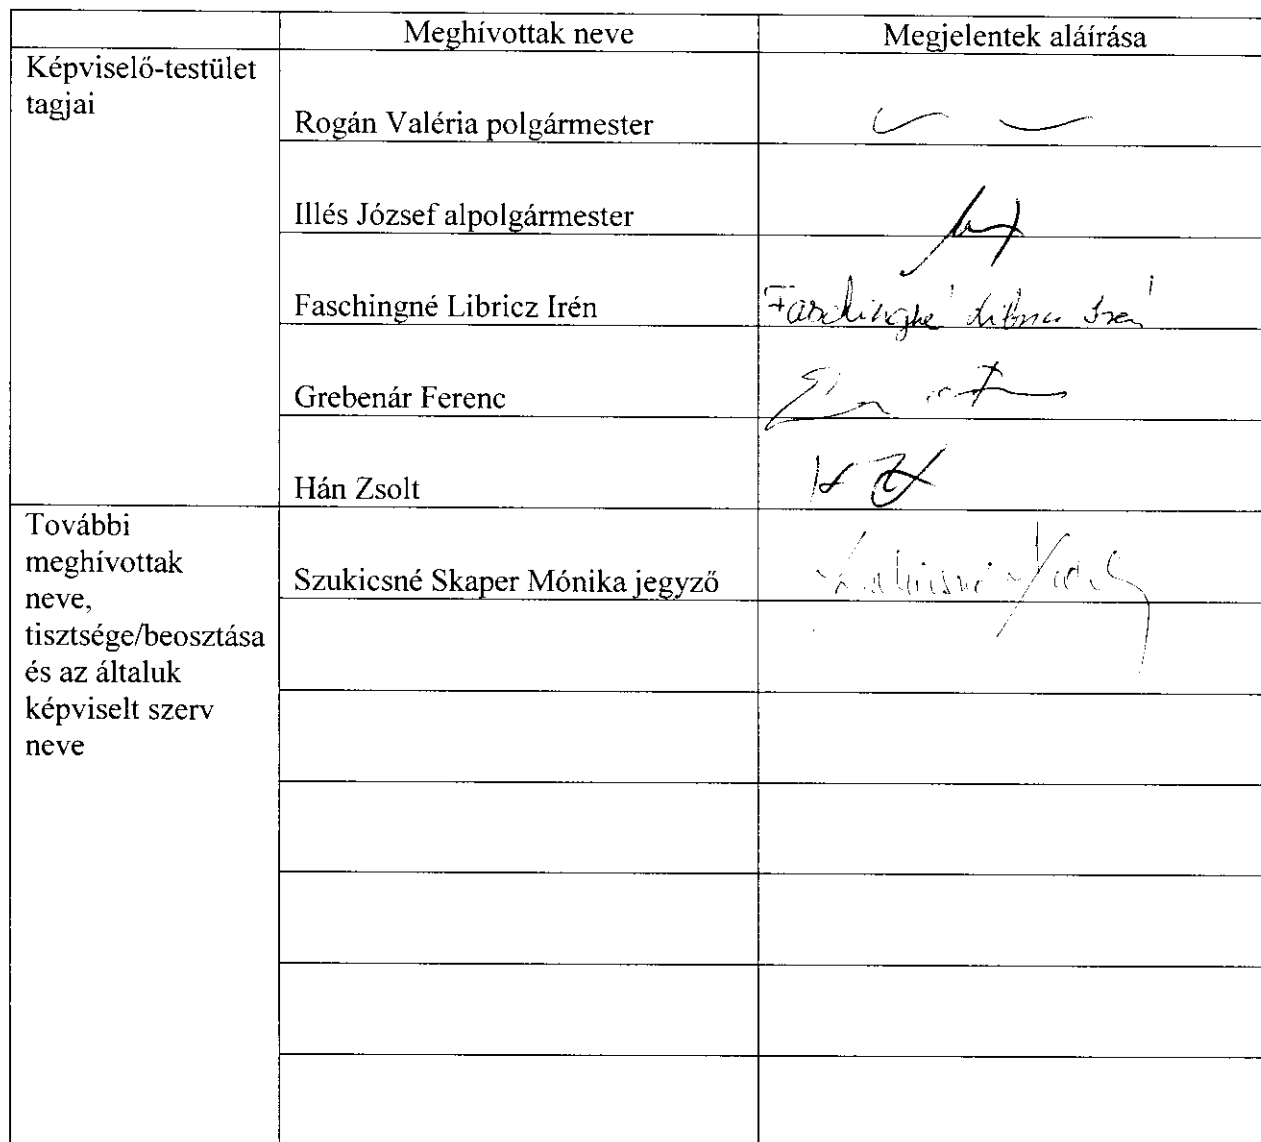 Meghívottak neve
Megjelentek aláírása
Képviselő-testület
tagjai
Rogán Valéria polgármester
Illés József alpolgármester
Faschingné Libricz Irén
Faschingné Irén
Grebenár Ferenc
Hán Zsolt
További
meghívottak
neve,
tisztsége/beosztása
és az általuk
képviselt szerv
neve
Szukicsné Skaper Mónika jegyző